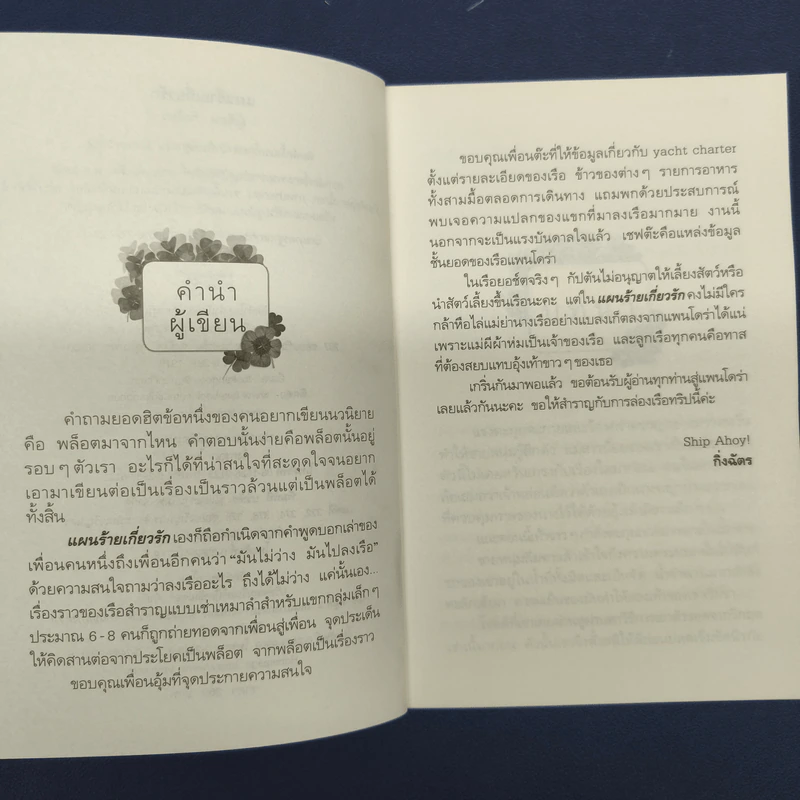 คำนำ
ผู้เขียน
คำถามยอดฮิตข้อหนึ่งของคนอยากเขียนนวนิยาย
คือ พล็อตมาจากไหน คำตอบนั้นง่ายคือพล็อตนั้นอยู่
รอบๆ ตัวเรา อะไรก็ได้ที่น่าสนใจที่สะดุดใจจนอยาก
เอามาเขียนต่อเป็นเรื่องเป็นราวล้วนแต่เป็นพล็อตได้
ทั้งสิ้น
แผนร้ายเกี่ยวรัก เองก็ถือกำเนิดจากคำพูดบอกเล่าของ
เพื่อนคนหนึ่งถึงเพื่อนอีกคนว่า “มันไม่ว่าง มันไปลงเรือ”
ด้วยความสนใจถามว่าลงเรืออะไร ถึงได้ไม่ว่าง แค่นั้นเอง...
เรื่องราวของเรือสำราญแบบเช่าเหมาลำสำหรับแขกกลุ่มเล็กๆ
ประมาณ 6-8 คนก็ถูกถ่ายทอดจากเพื่อนสู่เพื่อน จุดประเด็น
ให้คิดสานต่อจากประโยคเป็นพล็อต จากพล็อตเป็นเรื่องราว
ขอบคุณเพื่อนอุ้มที่จุดประกายความสนใจ
ขอบคุณเพื่อนต๊ะที่ให้ข้อมูลเกี่ยวกับ yacht charter
ตั้งแต่รายละเอียดของเรือ ข้าวของต่างๆ รายการอาหาร
ทั้งสามมื้อตลอดการเดินทาง แถมพกด้วยประสบการณ์
พบเจอความแปลกของแขกที่มาลงเรือมากมาย งานนี้
นอกจากจะเป็นแรงบันดาลใจแล้ว เชฟต๊ะคือแหล่งข้อมูล
ชั้นยอดของเรือแพนโดร่า
ในเรือยอช์ตจริงๆ กัปตันไม่อนุญาตให้เลี้ยงสัตว์หรือ
นำสัตว์เลี้ยงขึ้นเรือนะคะ แต่ใน แผนร้ายเกี่ยวรัก คงไม่มีใคร
กล้าหือไล่แม่ย่านางเรืออย่างแบลงเก็ตลงจากแพนโดร่าได้แน่
เพราะแม่มีผ้าห่มเป็นเจ้าของเรือ และลูกเรือทุกคนคือทาส
ที่ต้องสยบแทบอุ้งเท้าขาวๆ ของเธอ
เกริ่นกันมาพอแล้ว ขอต้อนรับผู้อ่านทุกท่านสู่แพนโดร่า
เลยแล้วกันนะคะ ขอให้สำราญกับการล่องเรือทริปนี้ค่ะ
Ship Ahoy!
กิ่งฉัตร